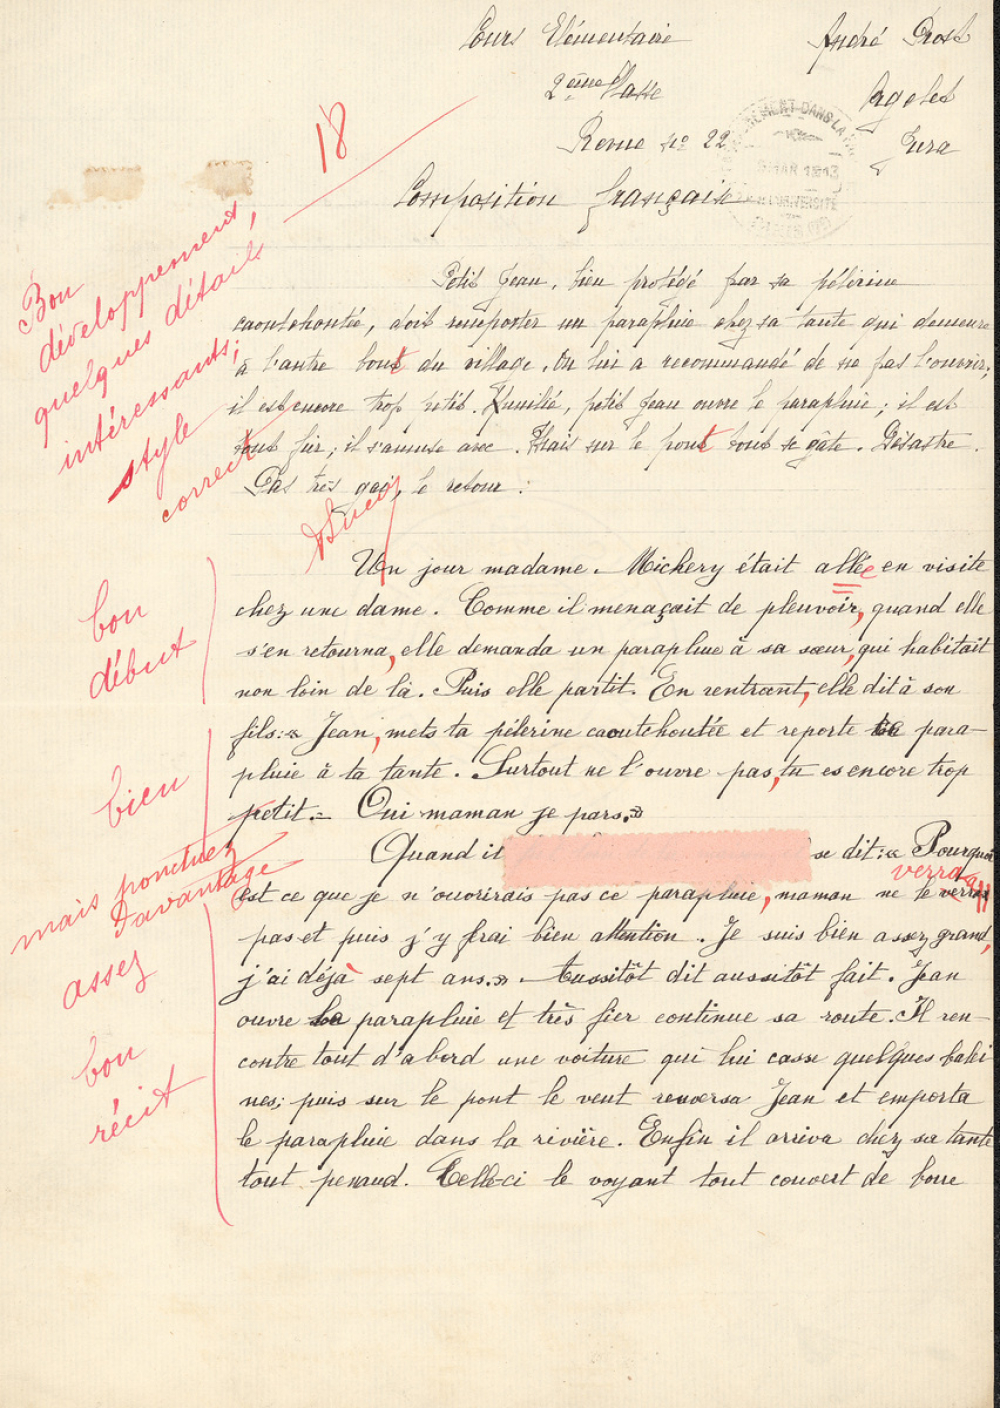 Cours Elémentaire
André Prost
2ème Classe
Pagelet
Revue nº 22
Jura
18
Composition française
Bon
développement,
quelques détails
intéressants;
style
correct
Petit Jean, bien protégé par sa pélerine
caoutchoutée, doit remporter un parapluie chez sa tante qui demeure
à l'autre bout du village. On lui a recommandé de ne pas l'ouvrir;
il est encore trop petit. Humilié, petit Jean ouvre le parapluie; il est
tout fier; il s'amuse avec. Mais sur le pont tout se gâte. Désastre.
Pas très gai, le retour:
Un jour madame Mickery était allée en visite
chez une dame. Comme il menaçait de pleuvoir, quand elle
s'en retourna, elle demanda un parapluie à sa sœur, qui habitait
non loin de là. Puis elle partit. En rentrant, elle dit à son
fils: « Jean, mets ta pélerine caoutchoutée et reporte le para-
pluie à ta tante. Surtout ne l'ouvre pas, tu es encore trop
petit. – Oui maman je pars. »
bon
début
bien
mais ponctuez
davantage
Quand il
se dit: « Pourquoi
verra
est ce que je n'ouvrirais pas ce parapluie, maman ne le verra
pas et puis j'y frai bien attention. Je suis bien assez grand,
j'ai déjà sept ans. » Aussitôt dit aussitôt fait. Jean
ouvre le parapluie et très fier continue sa route. Il ren-
contre tout d'abord une voiture qui lui casse quelques balei
nes; puis sur le pont le vent renversa Jean et emporta
le parapluie dans la rivière. Enfin il arriva chez sa tante
tout penaud. Celle-ci le voyant tout couvert de boue
assez
bon
récit